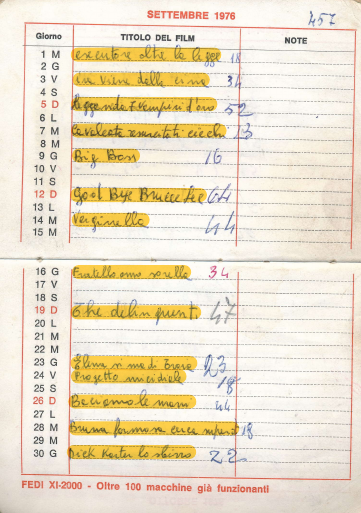 SETTEMBRE 1976
457
Giorno TITOLO DEL FILM NOTE
1 M esecutore oltre la legge 18
2 G
3 V che viene dalla 34
4 S
5 D leggenda 7 vampiri d'oro 52
6 L
7 M Cavalcata resuscitati ciechi 13
8 M
9 G Big Boss 16
10 V
11 S
12 D Good Bye Bruce Lee 64
13 L
14 M Verginella 44
15 M
16 G Fratello amo sorella 34
17 V
18 S
19 D The delinquent. 47
20 L
21 M
22 M
23 G Elena si ma di Troia 23
24 V Progetto micidiale 18
25 S
26 D Baciamo le mani 44
27 L
28 M Bruna formosa cerca superdo 18
29 M
30 G Dick Karter lo sbirro 22
FEDI XI-2000 - Oltre 100 macchine già funzionanti